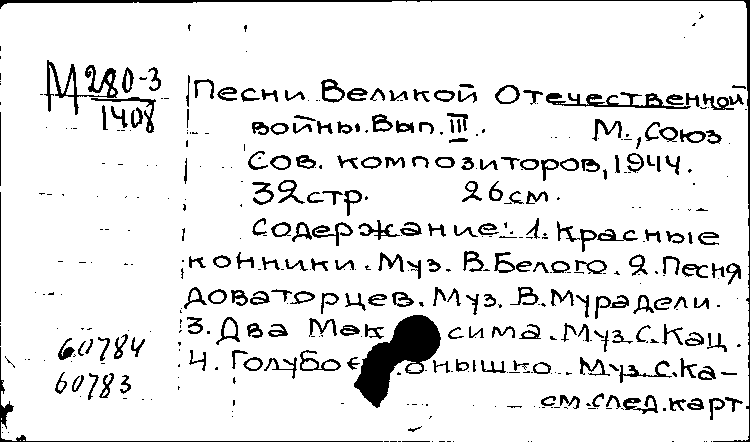 М 280-3
1408
Песни Великой Отечественной
войны. Вып. III. М., Союз
сов. композиторов, 1944.
32 стр. 26 см.
Содержание: 1. Красные
конники. Муз. В. Белого. 2. Песня
доваторцев. Муз. В. Мурадели.
3. Два Максима. Муз. С. Кац.
60784
4. Голубое Муз. С. Ка-
60783
см. след. карт.